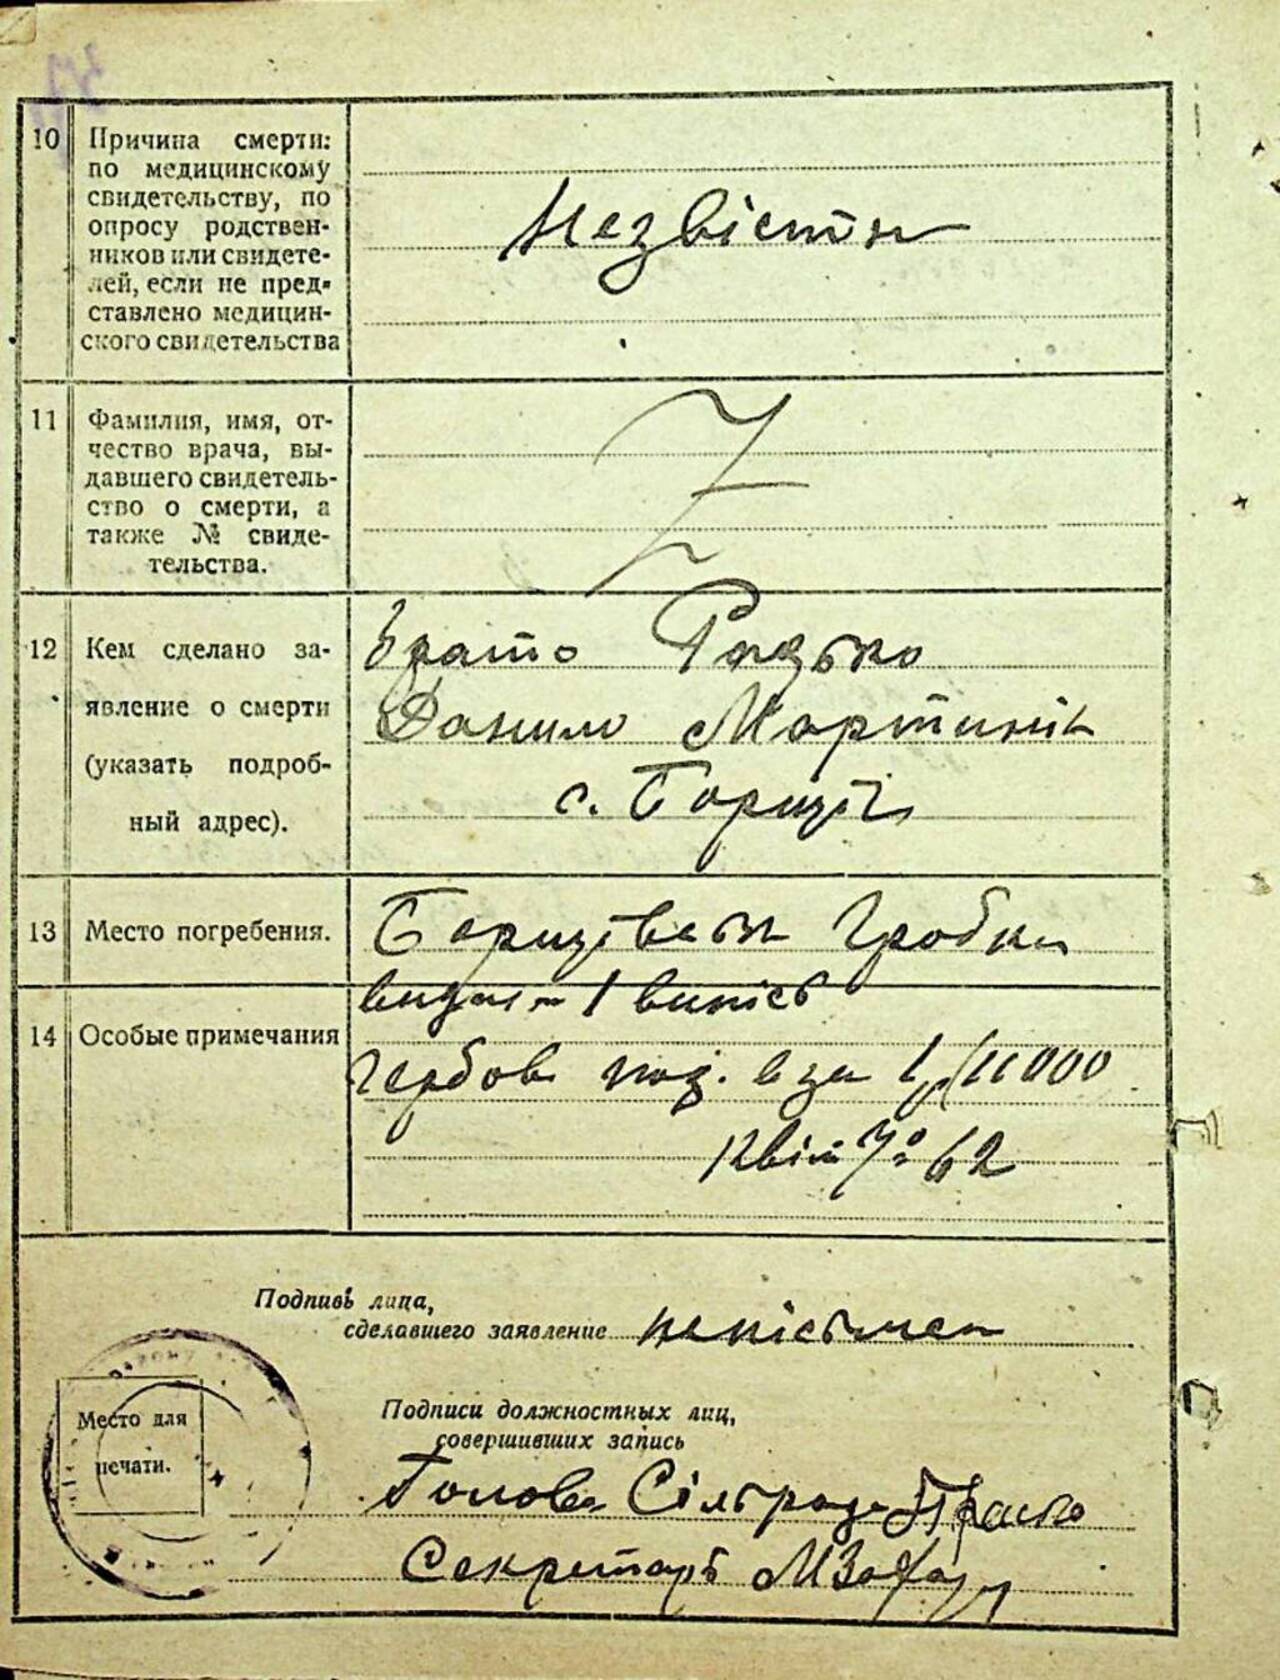 10
Причина смерти:
по медицинскому
свидетельству, по
опросу родствен-
ников или свидете-
лей, если не пред-
ставлено медицин-
ского свидетельства
Незвістн
11
Фамилия, имя, от-
чество врача, вы-
давшего свидетель-
ство о смерти, а
также № свиде-
тельства.
Z
12
Кем сделано за-
явление о смерти
(указать подроб-
ный адрес).
Брато Радько
Данило Мартинів
с.
13
Место погребения.
гробки
14
Особые примечания
1 випісь
гербов за
62
Подпись лица,
сделавшего заявление непісьмен
Место для
печати.
Подписи должностных лиц,
совершивших запись
Голова Сільради
Секретарь